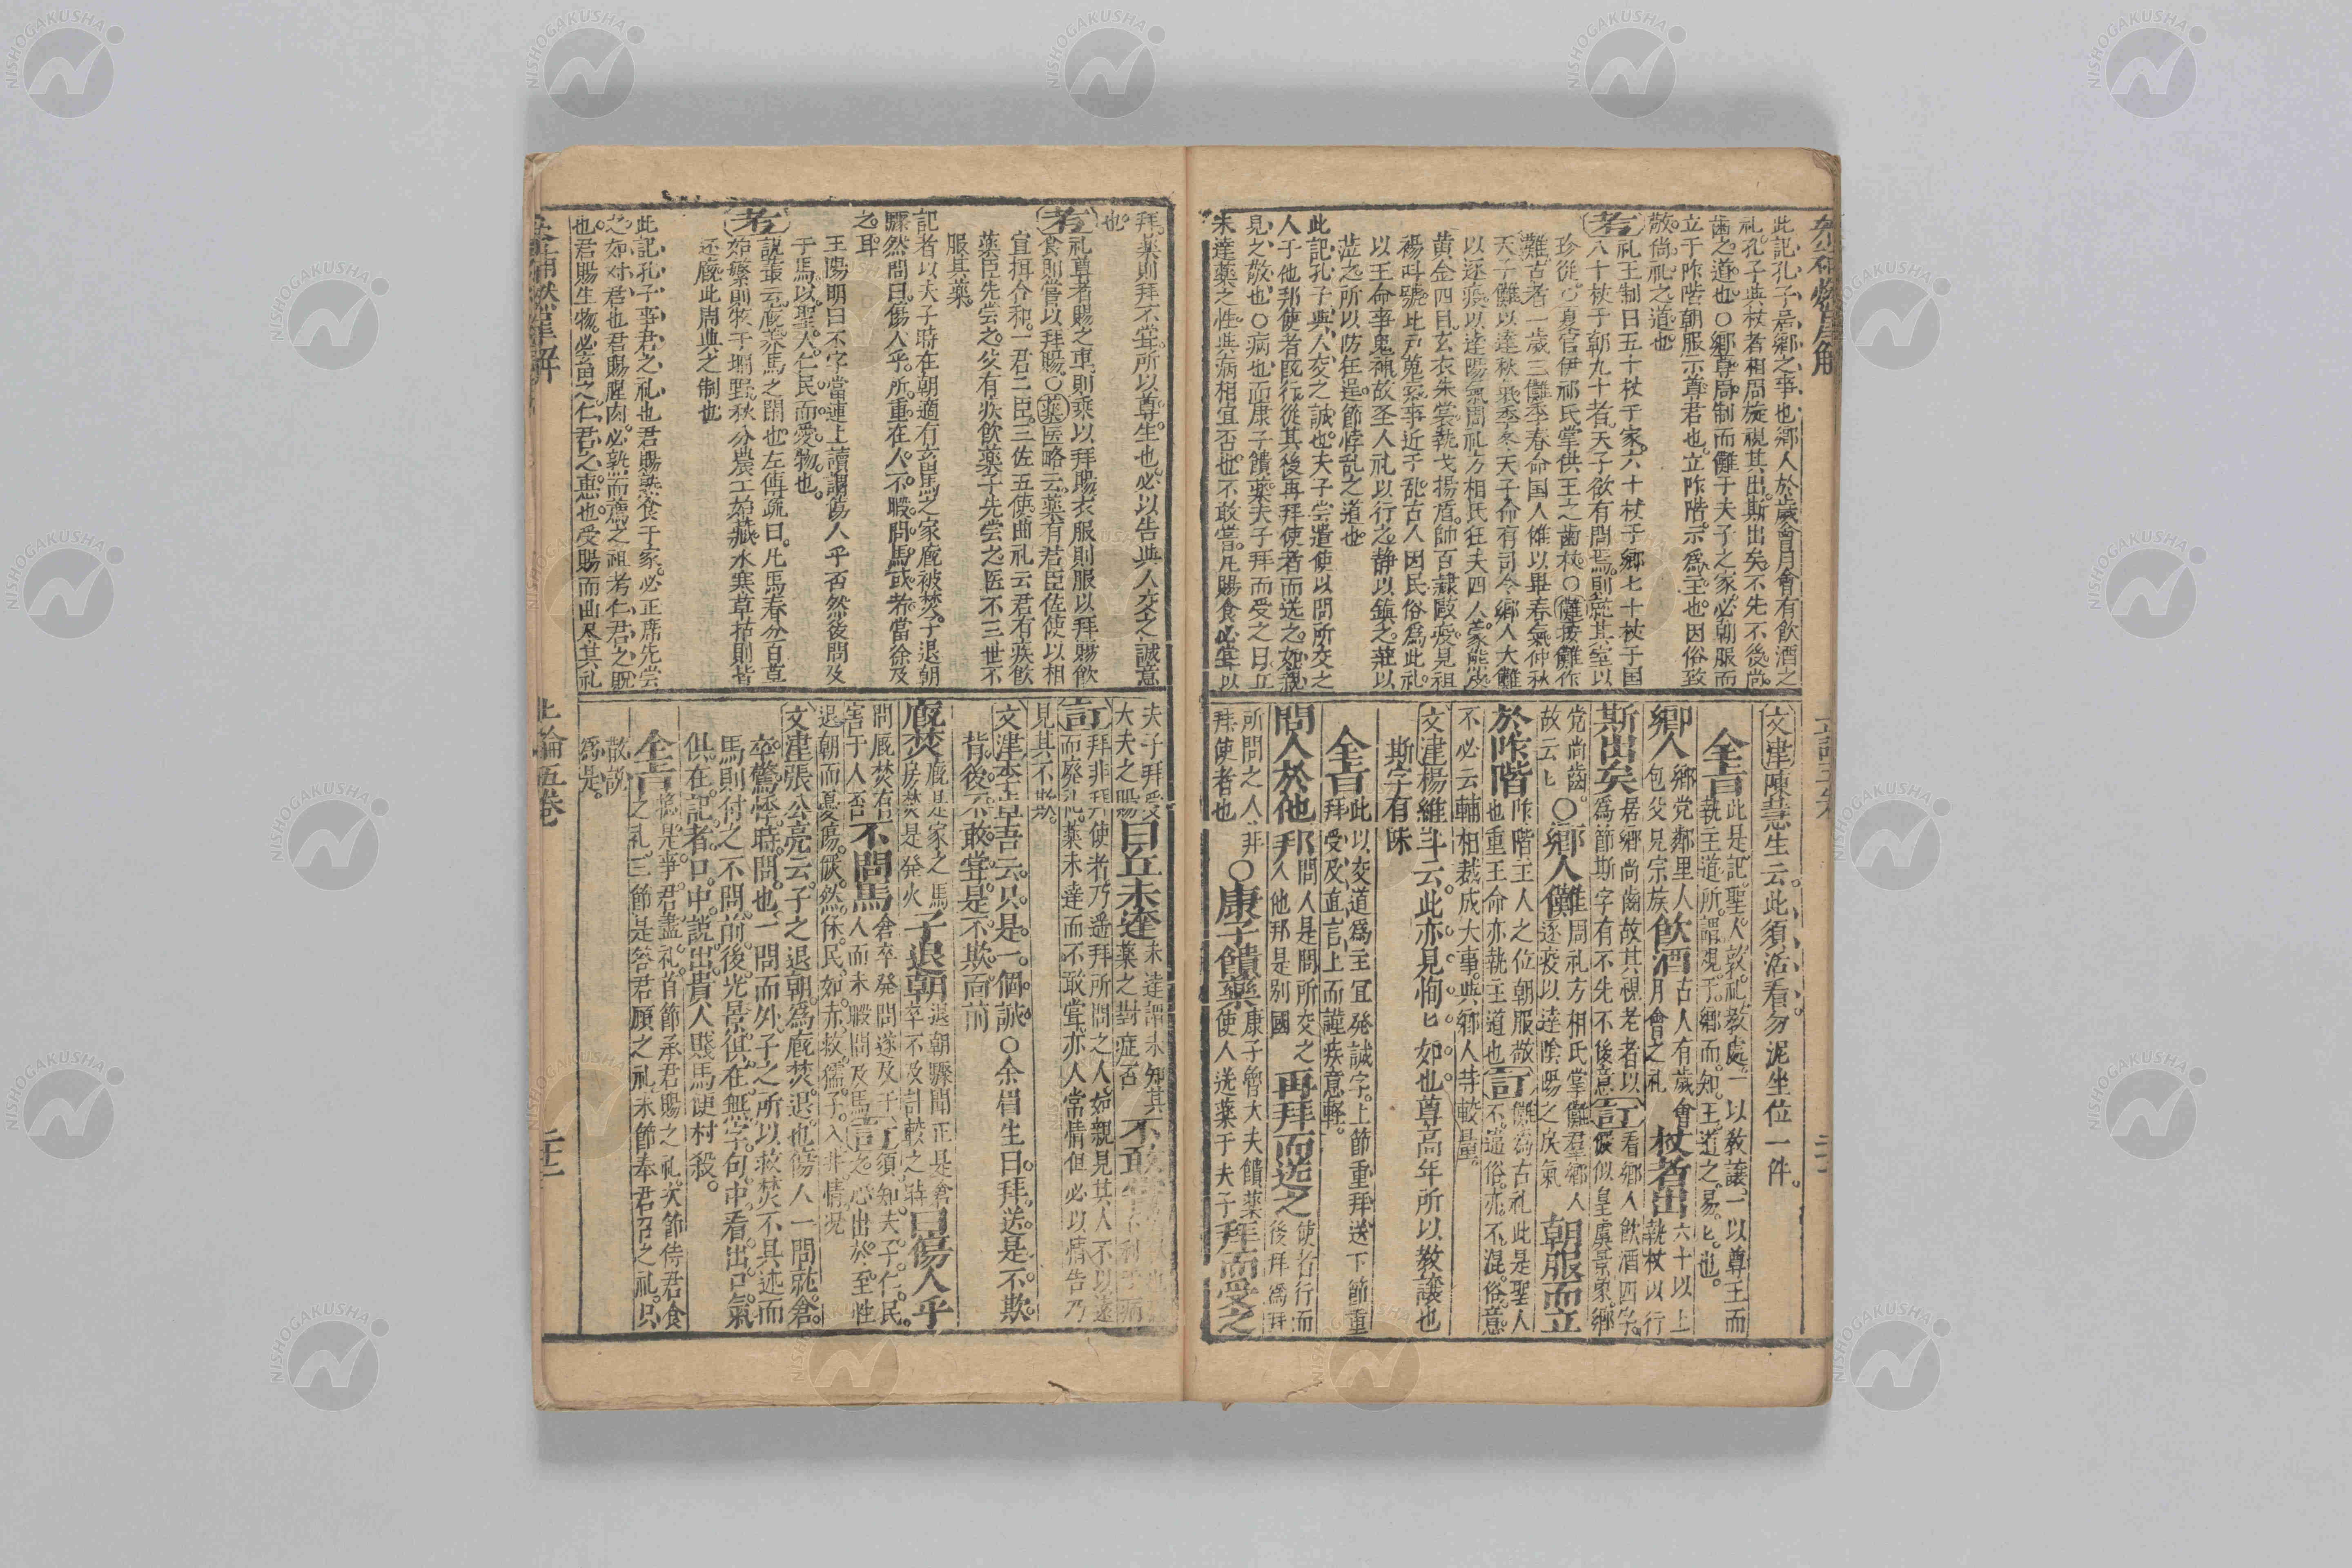 此記孔子居鄉之事也鄉人於歲會月會有飲酒之
礼孔子與杖者相周旋視其出斯出矣不先不後尚
歯之道也○鄉尊周制而儺于夫子之家必朝服而
立于阼階朝服示尊君也立阼階示為主也因俗致
敬尚祀之道也
考 礼王制曰五十杖于家六十杖于鄉七十杖于国
八十杖于朝九十者天子欲有問焉則就其室以
珍從○夏官伊祁氏掌供王之歯杖○儺按儺作
難古者一歲三儺季春命国人儺以畢春氣仲秋
天子儺以達秋氣季冬天子命有司令鄉人大儺
以逐疫以達陽氣周礼方相氏狂夫四人蒙熊皮
黃金四目玄衣朱裳執戈揚盾帥百隷敺疫見祖
禓呌號比戸蒐索事近于乱古人因民俗爲此礼
以王命事鬼神故圣人礼以行之静以鎮之莊以
蒞之所以防在逞節悖乱之道也
此記孔子與人交之誠也夫子尝遣使以問所交之
人于他邦使者既行從其後再拜使者而送之如親
見之敬也○病也而康子饋藥夫子拜而受之曰丘
未達藥之性與病相宜否也不敢嘗凡賜食必尝以
文津 陳慧生云此須活看勿泥坐位一件
全旨 此是記聖人敦礼教處一以敎讓一以尊王而
執主道所謂視于鄉而知王道之易匕也
鄉人 鄉党鄰里人
包父兄宗族 飲酒 古人有歲會
月會之礼 杖者出 六十以上
執杖以行
斯出矣 居鄉尚齒故其視老者以
爲節斯字有不先不後意 訂 看鄉人飲酒四字
儼似皇虞景象鄉
党尚齒
故云匕 ○鄉人儺 周礼方相氏掌儺羣鄉人
逐疫以達陰陽之戾氣 朝服而立
於阼階 阼階主人之位朝服敬
也重王命亦執主道也 訂 儺為古礼此是聖人
不逼俗亦不混俗意
不必云輔相裁成大事與鄉人苛較量
文津 楊維斗云此亦見恂匕如也尊高年所以教讓也
斯字有味
全旨 此以交道爲主冝発誠字上節重拜送下節重
拜受及直言上而謹疾意軽
問人於他邦 問人是問所交之
人他邦是别國 再拜而送之 使者行而
後拜爲拜
所問之人非
拜使者也 ○康子饋藥 康子魯大夫饋藥
使人送藥于夫子 拜而受之
拜藥則拜不尝所以尊生也必以告與人交之誠意
也
考 礼尊者賜之車則乘以拜賜衣服則服以拜賜飲
食則嘗以拜賜○藥医略云藥有君臣佐使以相
宜揖合和一君二臣三佐五使曲礼云君有疾飲
藥臣先尝之父有疾飲藥子先尝之医不三世不
服其藥
記者以夫子時在朝適有畜馬之家廐被焚子退朝
驟然問曰傷人乎所重在人不暇問馬或者當徐及
之耳
王陽明曰不字當連上讀謂傷人乎否然後問及
于馬以聖人仁民而愛物也
考 説叢云廐养馬之閑也左傳疏曰凡馬春分百草
始繁則牧于坰野秋分農工始藏水寒草枯則皆
还廐此周典之制也
此記孔子事君之礼也君賜熟食于家必正席先尝
之如对君也君賜腥肉必熟而薦之祖考仁君之賜
也君賜生物必畜之仁君之惠也受賜而曲尽其礼
夫子拜受
大夫之賜 曰丘未達 未達謂未知其
藥之對症否 不敢
訂 拜非拜使者乃遥拜所問之人如親見其人不以遠
而廢礼藥未達而不敢尝亦人常情但必以情告乃
見其不欺
文津 李卓吾云只是一個誠○余眉生曰拜送是不欺
背後不敢尝是不欺面前
廐焚 廐是家之馬
房焚是発火 子退朝 退朝驟聞正是倉
卒不及計較之 曰傷人乎
問廐焚右
害于人否 不問馬 倉卒発問遂及于人
人而未暇問及馬 訂 須知夫子仁民
之心出於至性
退朝而憂傷惻然保民如赤救孺子入井情况
文津 張公亮云子之退朝為廐焚退也傷人一問就倉
卒驚悸時問也一問而外子之所以救焚不具述而
馬則付之不問前後光景俱在無字句中看出口氣
俱在記者口中説出貴人賤馬便村殺
全旨 総是事君盡礼首節承君賜之礼次節侍君食
之礼三節是答君顧之礼末節奉君召之礼只
散説
爲是
上論五卷